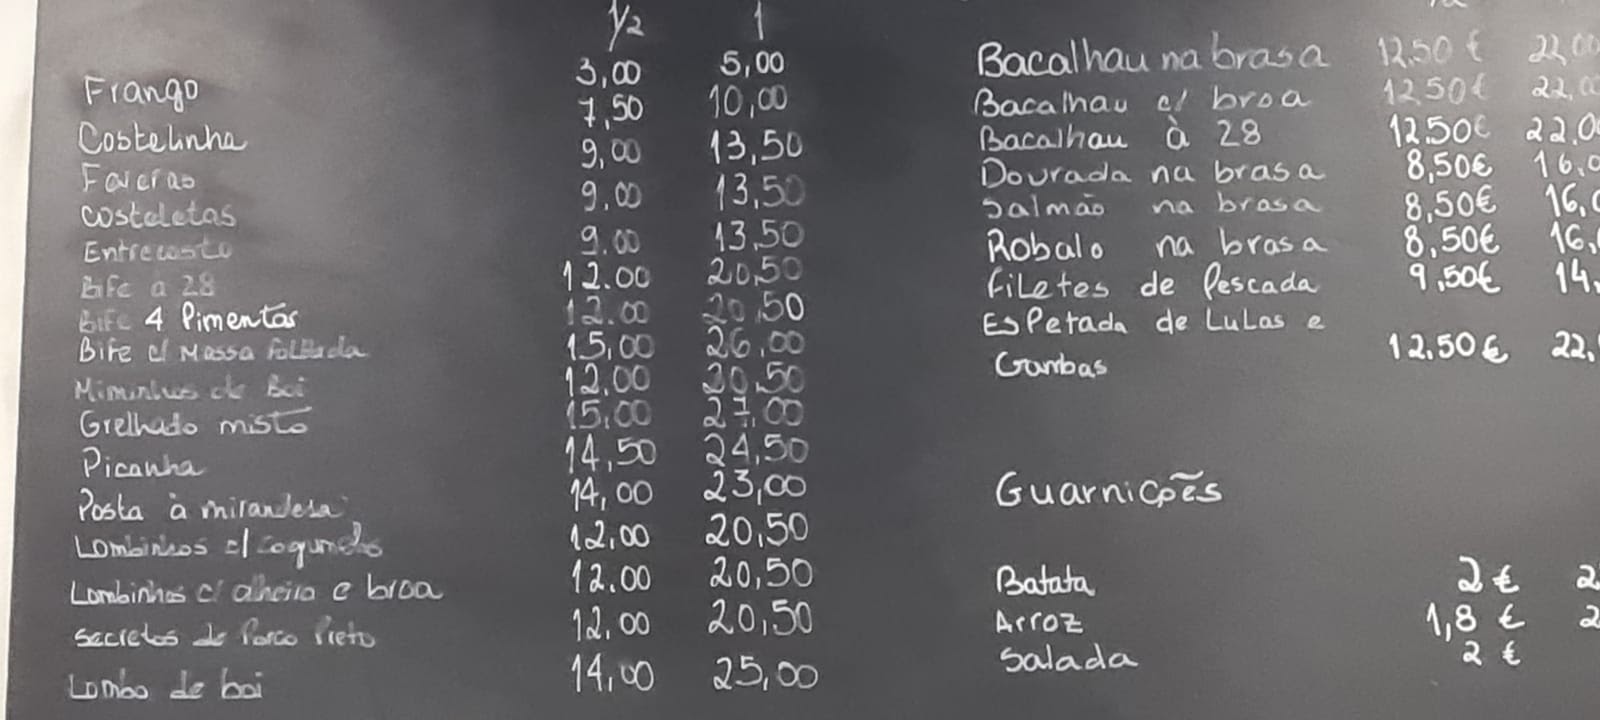 ½ 1
Frango 3,00 5,00
Costelinha 7,50 10,00
Faceiras 9,00 13,50
Costeletas 9,00 13,50
Entrecosto 9.00 13,50
Bife à 28 12.00 20,50
Bife 4 Pimentas 12.00 20,50
Bife c/ Massa folhada 15,00 26,00
Miminhos de Boi 12.00 20,50
Grelhado misto 15,00 27,00
Picanha 14,50 24,50
Posta à mirandesa 14,00 23,00
Lombinhos c/ cogumelos 12,00 20,50
Lombinhos c/ alheira e broa 12.00 20,50
Secretos de Porco Preto 12,00 20,50
Lombo de boi 14,00 25,00
Bacalhau na brasa 12.50 € 22,00
Bacalhau c/ broa 12.50€ 22,00
Bacalhau à 28 12.50€ 22,0
Dourada na brasa 8,50€ 16,0
Salmão na brasa 8,50€ 16,0
Robalo na brasa 8,50€ 16,
Filetes de Pescada 9,50€ 14,
Espetada de Lulas e
Gambas 12.50€ 22,
Guarnições
Batata 2€ 2
Arroz 1,8 € 2
Salada 2 €